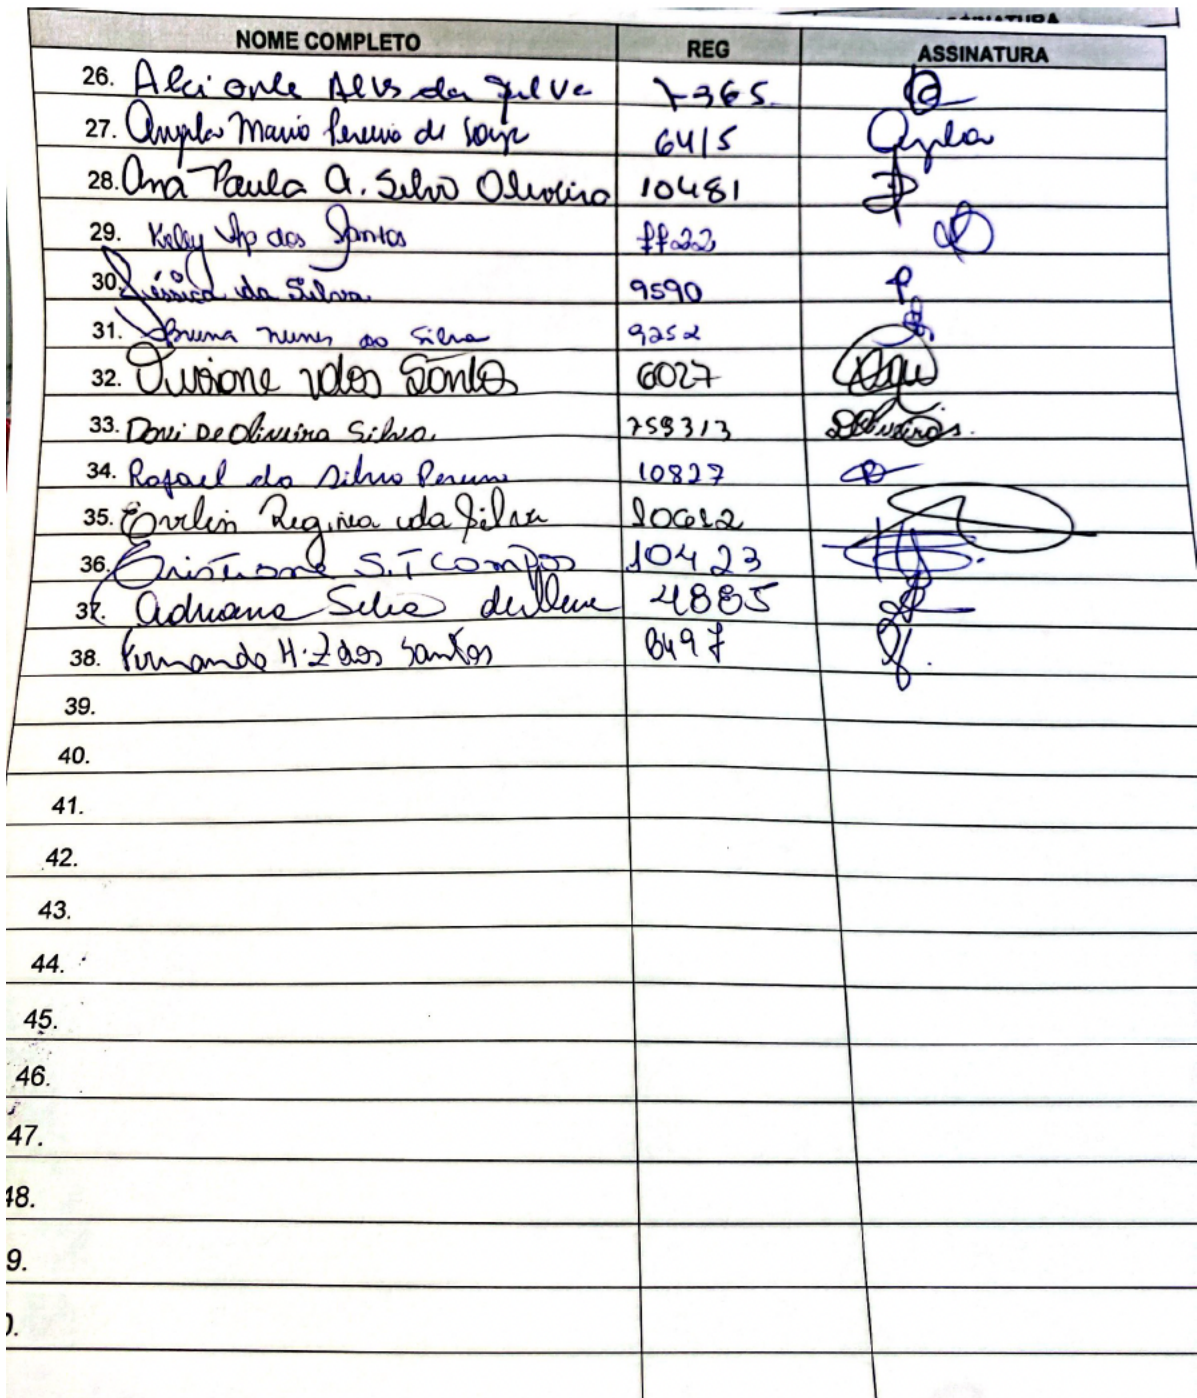 NOME COMPLETO REG ASSINATURA
26. Alcione Alvs da Silva 7365
27. Angela Maria Pereira de Souza 6415 Angela
28. Ana Paula A. Silva Oliveira 10481
29. Kelly Ap dos Santos 7722
30. Jéssica da Silva 9590
31. Bruna Nunes da Silva 9252
32. dos Santos 6027
33. Davi De Oliveira Silva. 759313
34. Rafael da Silva Pereira 10827
35. Evelin Regina da Silva
36. Cristiane S.T Campos 10423
37. Adriana Silva 4885
38. Fernando H. Z dos Santos 8497
39.
40.
41.
42.
43.
44.
45.
46.
47.
48.
9.